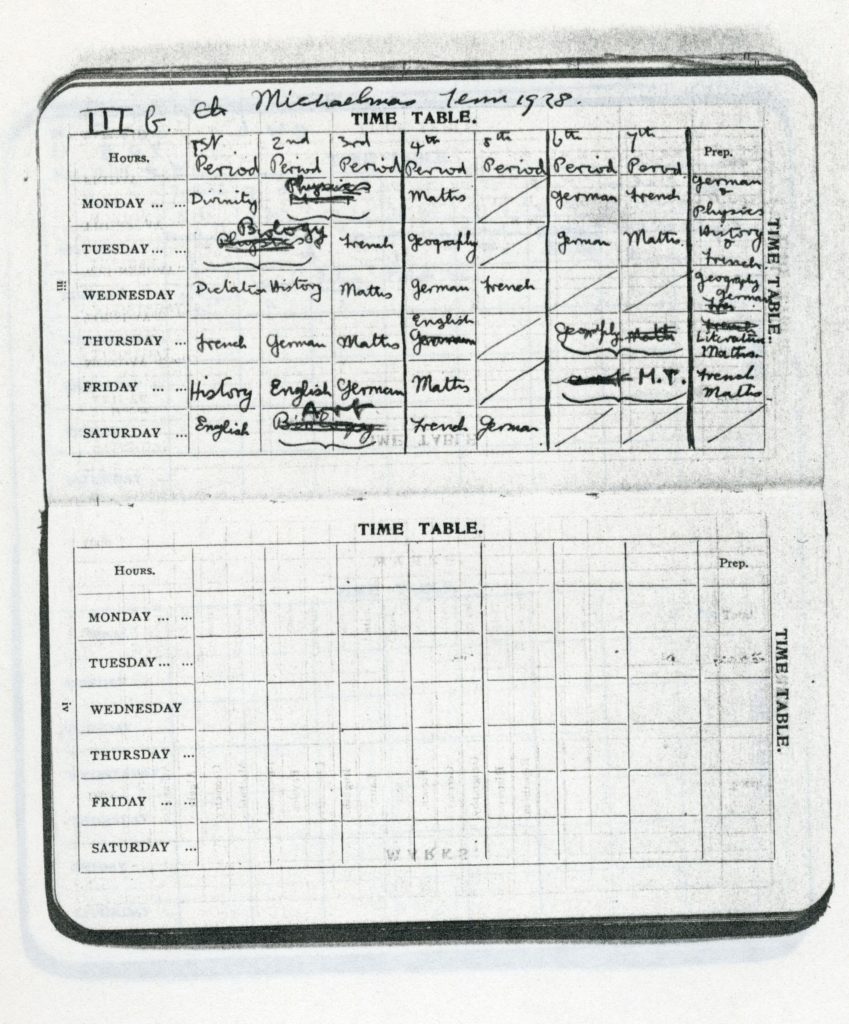 III b. Michaelmas Term 1928.
TIME TABLE.
HOURS. 1st Period 2nd Period 3rd Period 4th Period 5th Period 6th Period 7th Period Prep.
MONDAY ... ... Divinity Physics Maths German French German & Physics
TUESDAY ... ... Biology Physics French Geography German Maths. History & French
WEDNESDAY Dictation History Maths German French Geography German
THURSDAY ... French German Maths English German Geography Maths French Literature Maths.
FRIDAY ... ... History English German Maths M.T. French Maths
SATURDAY ... English Art Biology French German
TIME TABLE.
iii
TIME TABLE.
HOURS. Prep.
MONDAY ... ...
TUESDAY ... ...
WEDNESDAY
THURSDAY ...
FRIDAY ... ...
SATURDAY ...
TIME TABLE.
iv